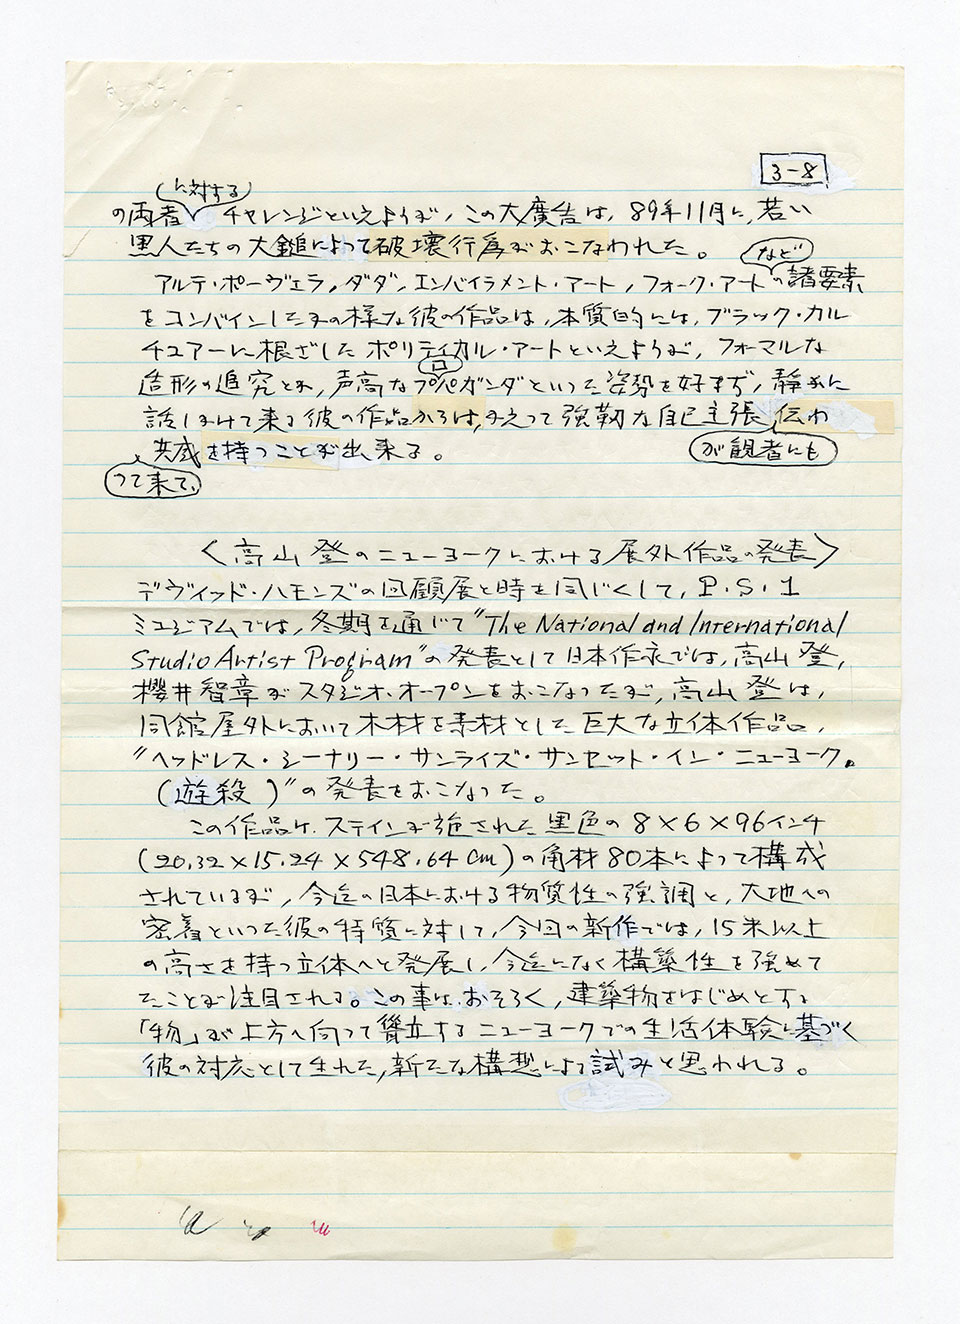 3-8
に対する
の両者 チャレンジといえようが、この大廣告は、89年11月に、若い
黒人たちの大鎚によって破壊行為がおこなわれた。
など
アルテ・ポーヴェラ、ダダ、エンバイラメント・アート、フォーク・アートの諸要素
をコンバインしたその様な彼の作品は、本質的には、ブラック・カル
チュアーに根ざしたポリティカル・アートといえようが、フォーマルな
ロ
造形の追究とか、声高なプパガンダといった姿勢を好まず、静かに
話しかけて来る彼の作品からは、かえって強靭な自己主張 伝わ
が観者にも
共感を持つことが出来る。
って来て、
〈高山登のニューヨークにおける展外作品の発表〉
デヴィッド・ハモンズの回顧展と時を同じくして、P.S.1
ミュジアムでは、冬期を通じて"The National and International
Studio Artist Program"の発表として日本作家では、高山登、
櫻井智章がスタジオ・オープンをおこなったが、高山登は、
同館屋外において木材を素材とした巨大な立体作品、
"ヘッドレス・シーナリー・サンライズ・サンセット・イン・ニューヨーク。
(遊殺)"の発表をおこなった。
この作品は、ステインが施された黒色の8×6×96インチ
(20.32×15.24×548.64cm)の角材80本によって構成
されているが、今迄の日本における物質性の強調と、大地への
密着といった彼の特質に対して、今回の新作では、15米以上
の高さを持つ立体へと発展し、今迄になく構築性を強めて
たことが注目される。この事は、おそらく、建築物をはじめとする
「物」が上方へ向って聳立するニューヨークでの生活体験に基づく
彼の対応として生れた、新たな構想による試みと思われる。